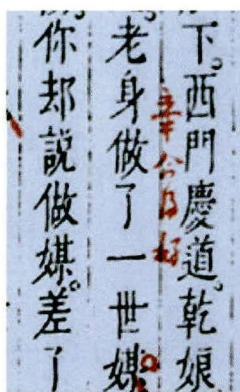 下。西門慶道。乾娘
老身做了一世媒。
你却說做媒。差了